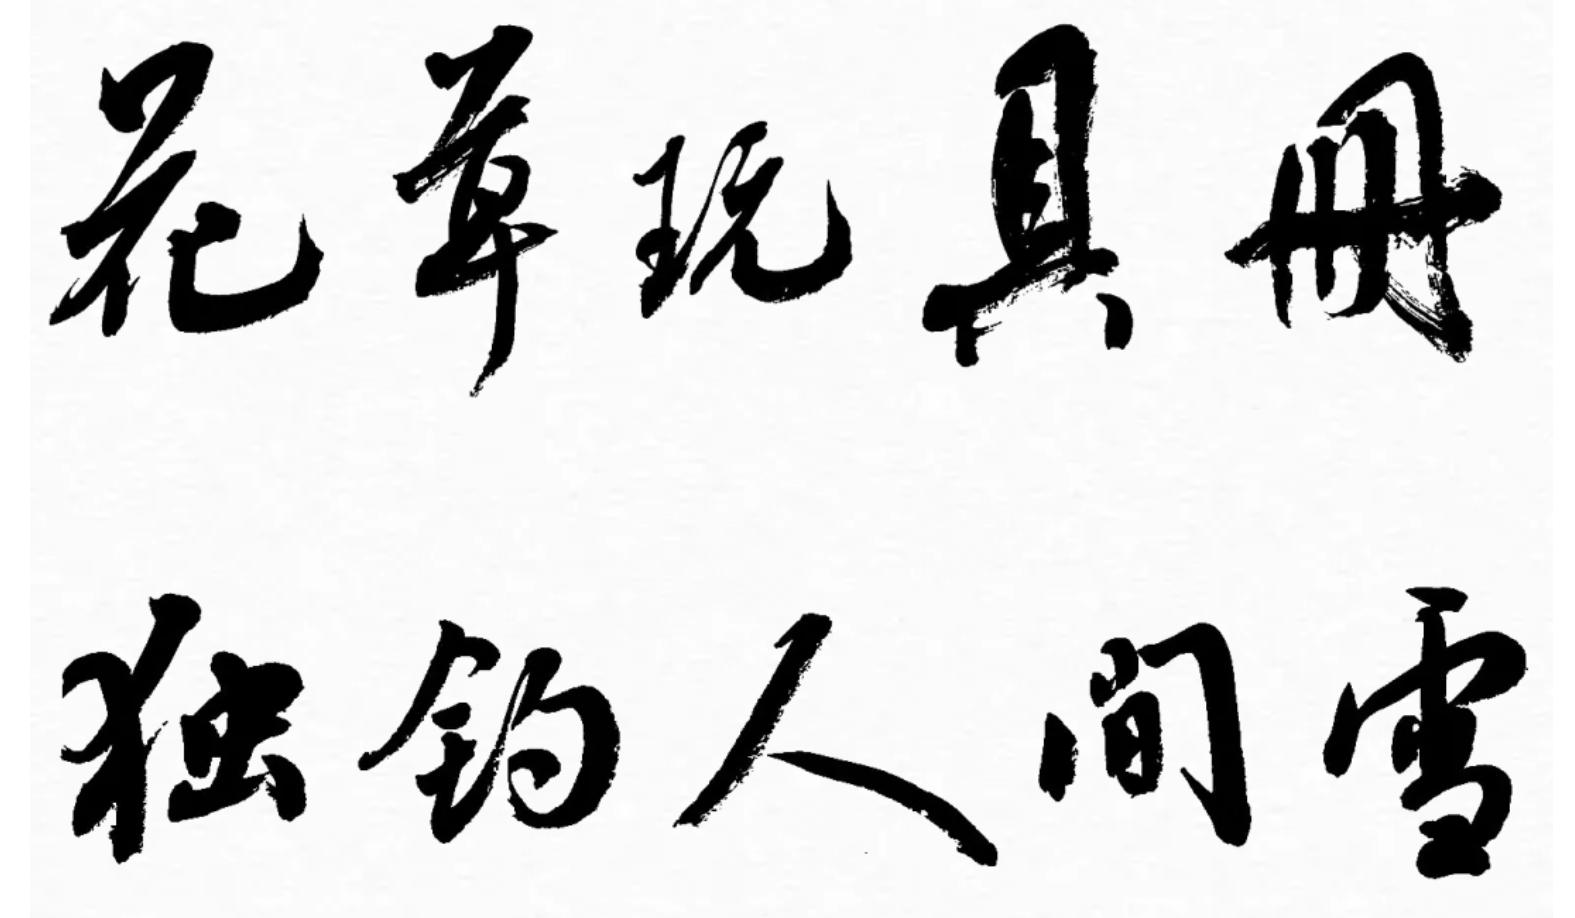 花草玩具册
独钓人间雪